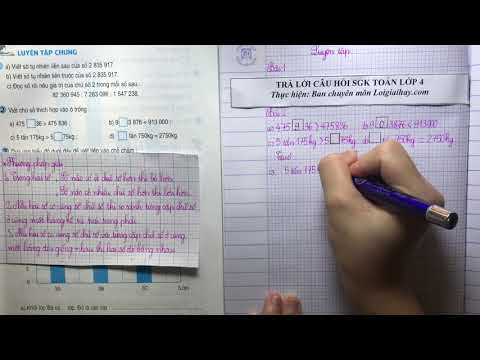 LUYỆN TẬP CHUNG
a) Viết số tự nhiên liền sau của số 2 835 917.
b) Viết số tự nhiên liền trước của số 2 835 917.
c) Đọc số rồi nêu giá trị của chữ số 2 trong mỗi số sau:
82 360 945 ; 7 283 096 ; 1 547 238.
2 Viết chữ số thích hợp vào ô trống:
a) 475 36 > 475 836
b) 9 3 876 < 913 000
c) 5 tấn 175kg > 5 75kg
d) tấn 750kg = 2750kg
Phương pháp giải
1. Trong hai số:
. Số nào có ít chữ số hơn thì bé hơn.
. Số nào có nhiều chữ số hơn thì lớn hơn.
2. Nếu hai số có cùng chữ số thì so sánh từng cặp chữ số
ở cùng một hàng kể từ trái sang phải.
3. Nếu hai số có tất cả các cặp chữ số ở
từng hàng đều giống nhau thì hai số đó bằng nhau.
3A 3B 3C Lớp
Luyện tập
Bài 1
TRẢ LỜI CÂU HỎI SGK TOÁN LỚP 4
Thực hiện: Ban chuyên môn Loigiaihay.com
Bài 2
a) 475 9 36 > 475836
b) 9 0 3876 < 913 000
c) 5 tấn 175kg > 5 75kg
d) tấn 750kg = 2750kg
5 tấn 175